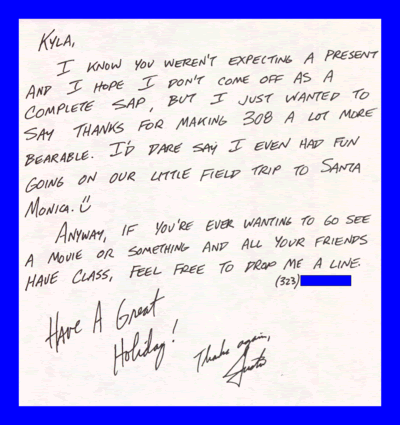 KYLA,
I KNOW YOU WEREN'T EXPECTING A PRESENT
AND I HOPE I DON'T COME OFF AS A
COMPLETE SAP, BUT I JUST WANTED TO
SAY THANKS FOR MAKING 308 A LOT MORE
BEARABLE. I'D DARE SAY I EVEN HAD FUN
GOING ON OUR LITTLE FIELD TRIP TO SANTA
MONICA.
ANYWAY, IF YOU'RE EVER WANTING TO GO SEE
A MOVIE OR SOMETHING AND ALL YOUR FRIENDS
HAVE CLASS, FEEL FREE TO DROP ME A LINE.
(323)
HAVE A Great
Holiday!
Thanks again,